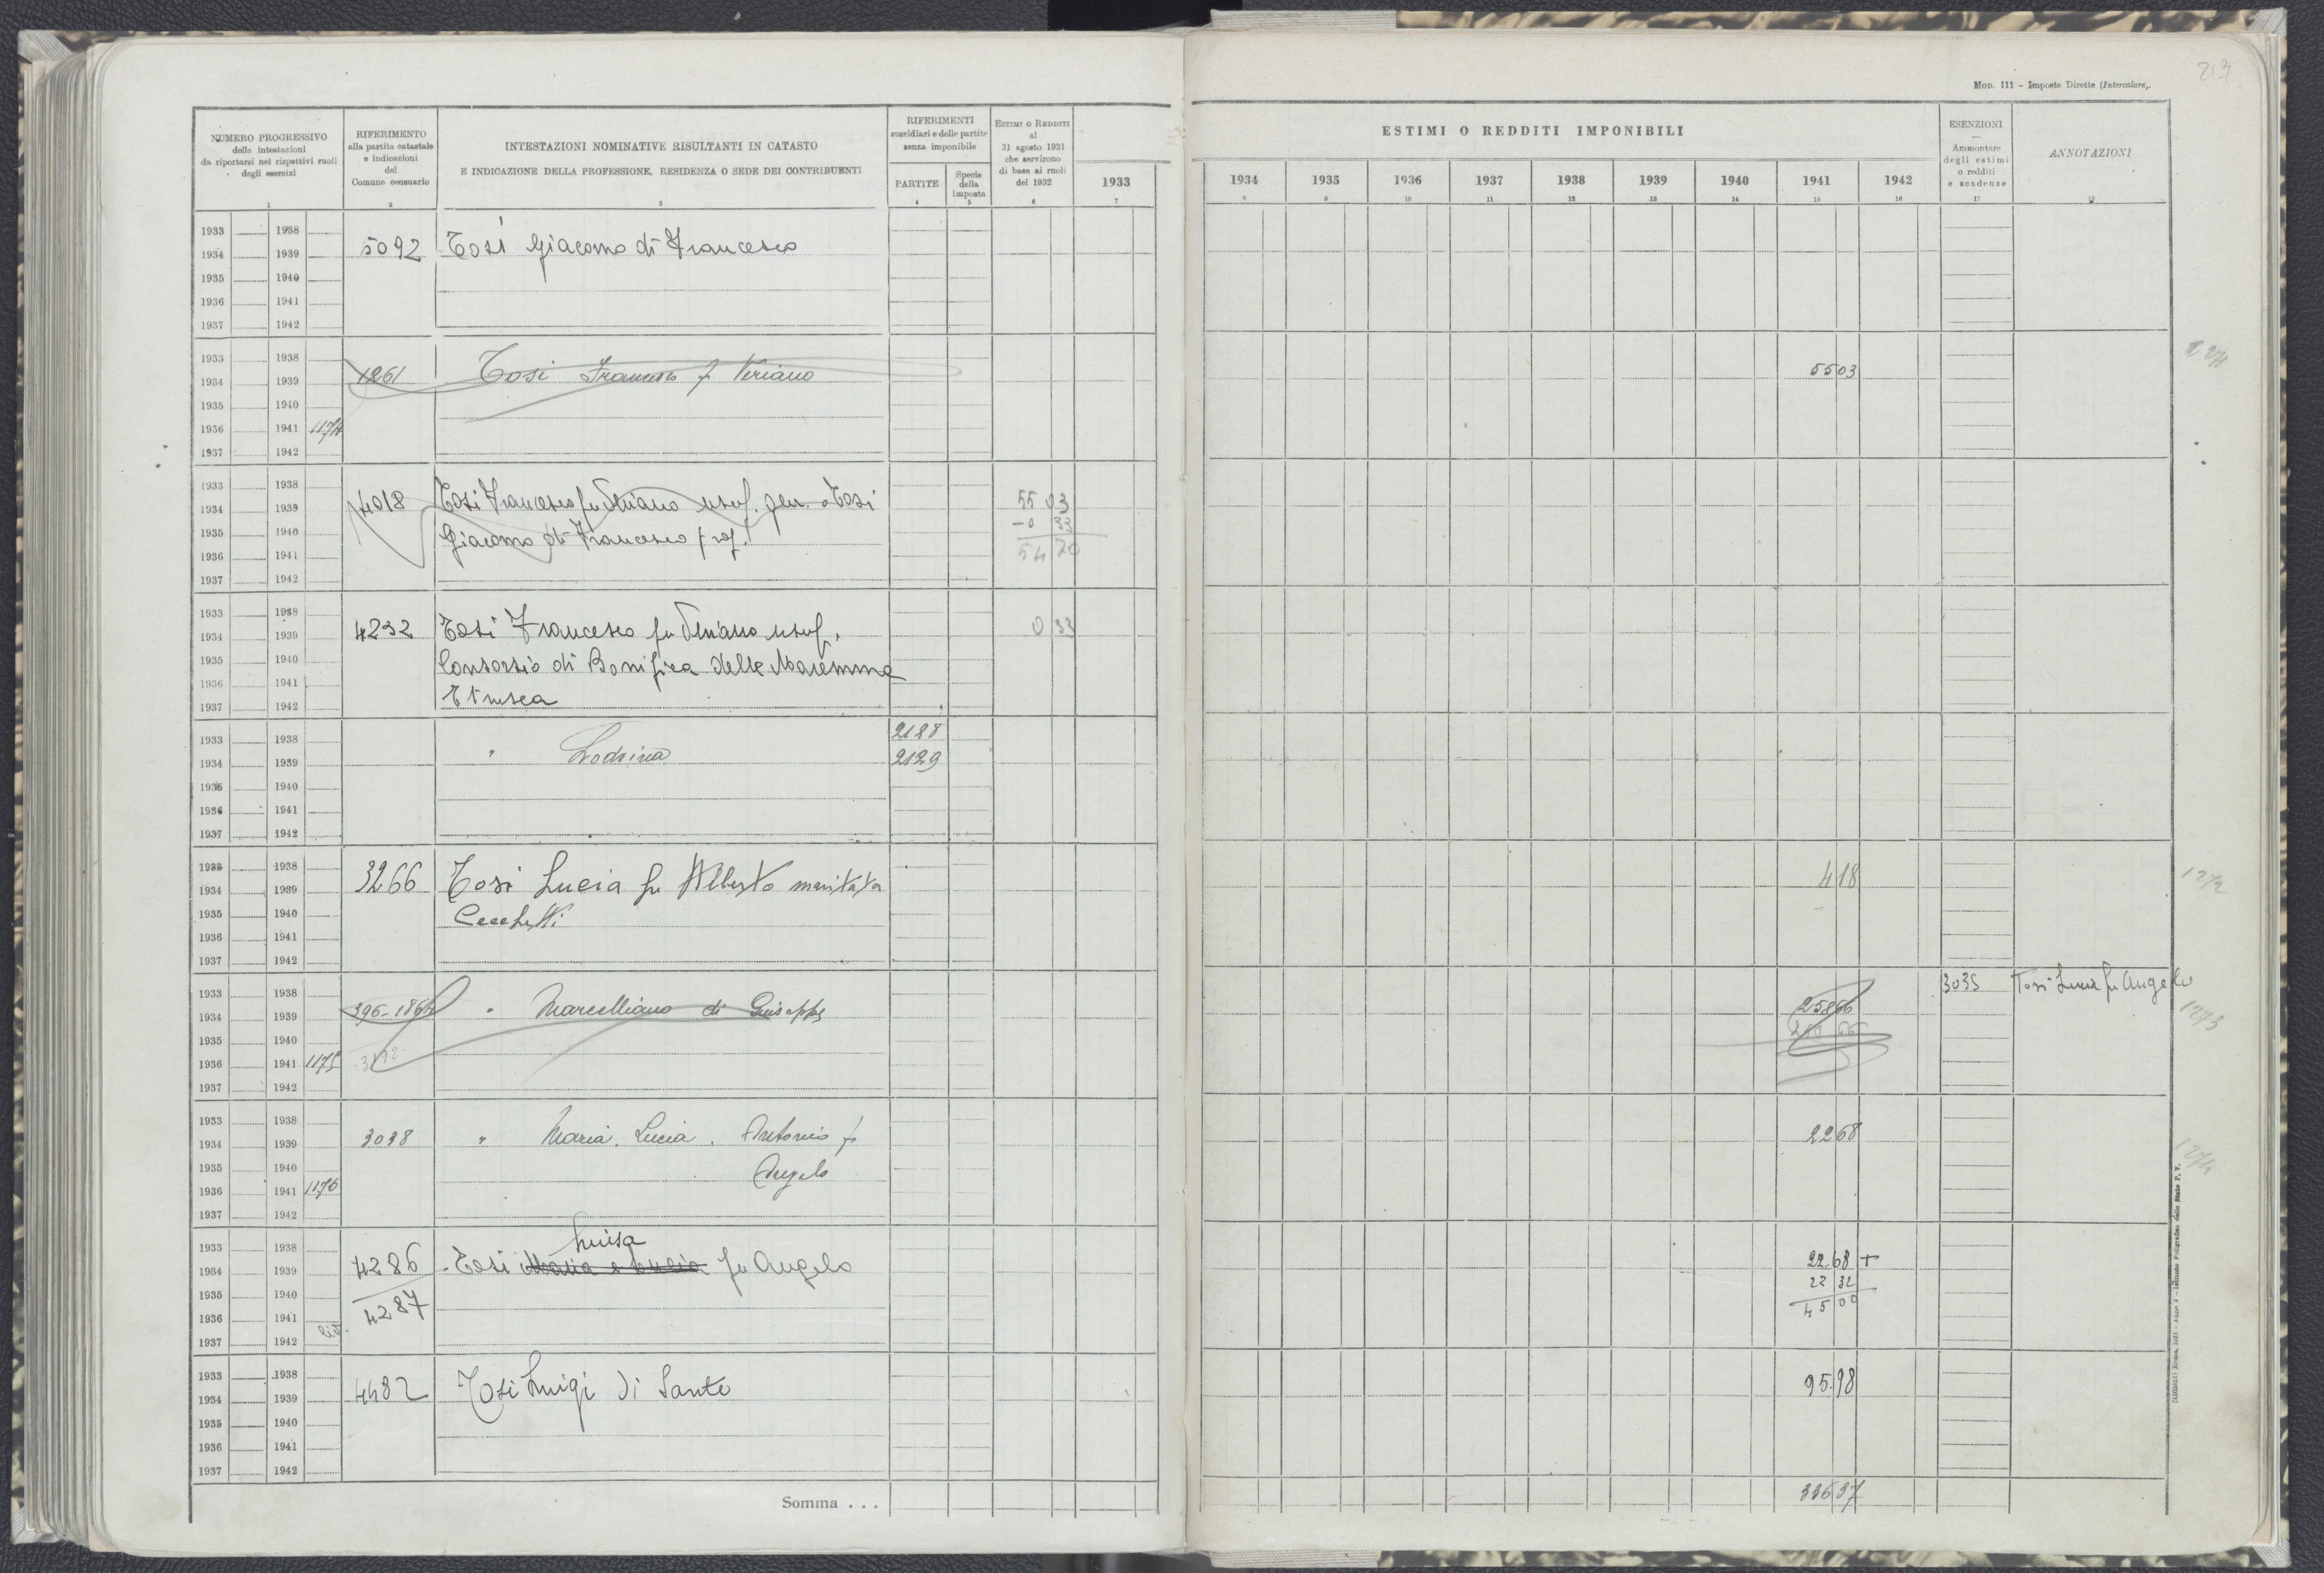 213
Mod. 111 - Imposte Dirette (Intercalare).
NUMERO PROGRESSIVO
delle intestazioni
da riportarsi nei rispettivi ruoli
degli esercizi
RIFERIMENTO
alla partita catastale
e indicazioni
del
Comune censuario
INTESTAZIONI NOMINATIVE RISULTANTI IN CATASTO
E INDICAZIONE DELLA PROFESSIONE, RESIDENZA O SEDE DEI CONTRIBUENTI
RIFERIMENTI
sussidiari e delle partite
senza imponibile
PARTITE
Specie
della
imposta
ESTIMI O REDDITI
al
31 agosto 1931
che servirono
di base ai ruoli
del 1932
1933
ESTIMI O REDDITI IMPONIBILI
1934 1935 1936 1937 1938 1939 1940 1941 1942
ESENZIONI
—
Ammontare
degli estimi
o redditi
e scadenze
ANNOTAZIONI
1 2 3 4 5 6 7 8 9 10 11 12 13 14 15 16 17 18
1933 1938
1934 1939 5092 Tosi Giacomo di Francesco
1935 1940
1936 1941
1937 1942
1933 1938
1934 1939 1261 Tosi Francesco f Veriano 5503
1271
1935 1940
1936 1941 1174
1937 1942
1933 1938
1934 1939 4018 Tosi Francesco fu Veriano usuf. gen. e Tosi 55 03
1935 1940 Giacomo di Francesco prop. -0 33
1936 1941 54 70
1937 1942
1933 1938
1934 1939 4232 Tosi Francesco fu Veriano usuf. 0 33
1935 1940 Consorzio di Bonifica della Maremma
1936 1941 Etrusca
1937 1942
1933 1938 2128
1934 1939 " Lodovina 2129
1935 1940
1936 1941
1937 1942
1933 1938
1934 1939 3266 Tosi Lucia fu Alberto maritata 418
1272
1935 1940 Cecchetti
1936 1941
1937 1942
1933 1938 3035 Tosi Lucia fu Angelo
1934 1939 396-1864 " Marcelliano di Giuseppe 25866
1273
1935 1940
1936 1941 1175
1937 1942
1933 1938
1934 1939 3038 " Maria. Lucia. Antonio f 2268
1274
1935 1940 Angelo
1936 1941 1176
1937 1942
Luisa
1933 1938
1934 1939 4286 Tosi Maria e Lucia fu Angelo 22 68 +
1935 1940 4287 22 32
1936 1941 45 00
1937 1942
1933 1938
1934 1939 4482 Tosi Luigi di Sante 95.98
1935 1940
1936 1941
1937 1942
Somma . . . 33637